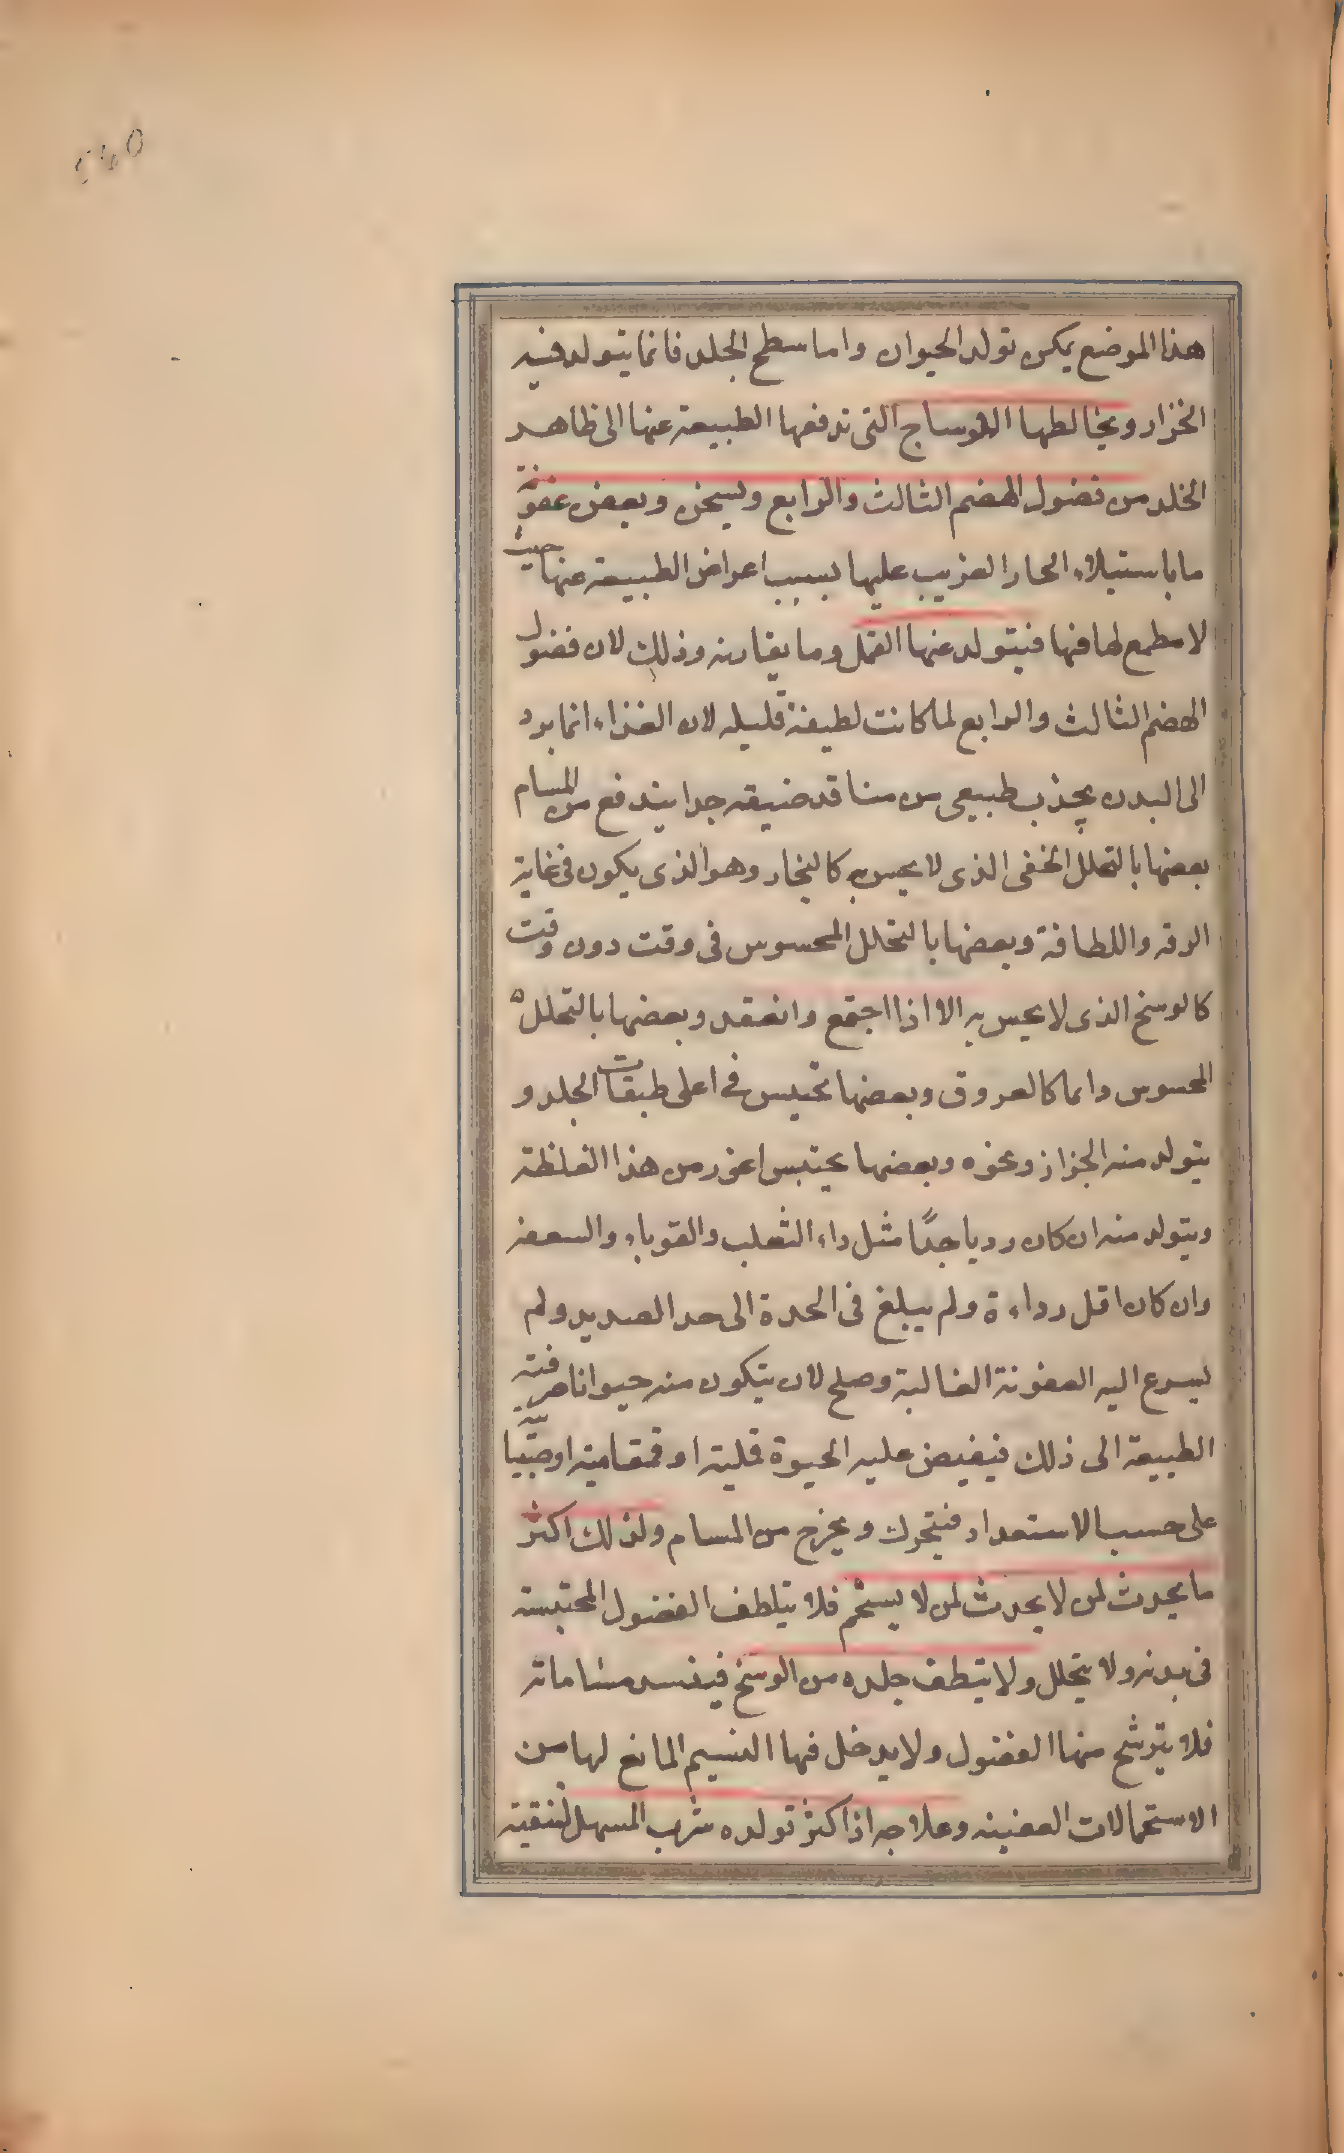 ٥٤٥
هذا الموضع يمكن تولد الحيوان واما سطح الجلد فانما يتولد فيه
الخزار ويخالطها الاوساج التى تدفعها الطبيعة عنها الى ظاهر
الخلد من فضول الهضم الثالث والرابع ويسخن وبعض عفونة
ما باستيلاء الحار الغريب عليها بسبب اعراض الطبيعة عنها حيث
لا مطمع لها فيها فيتولد عنها القمل وما يقاربه وذلك لان فضول
الهضم الثالث والرابع لما كانت لطيفة قليله لان الغذاء انما يرد
الى البدن بجذب طبيعى من منافد ضيقه جدا يندفع من المسام
بعضها بالتحلل الخفى الذى لا يحس به كالبخار وهو الذى يكون فى غاية
الرقه واللطافة وبعضها بالتحلل المحسوس فى وقت دون وقت
كالوسخ الذى لا يحس به الا اذا اجتمع وانعقد وبعضها بالتحلل
المحسوس دايما كالعروق وبعضها تحتبس فى اعلى طبقات الجلد و
يتولد منه الجزاز ونحوه وبعضها يحتبس اغور من هذا الغلظة
ويتولد منه ان كان رديا جدًا مثل داء الثعلب والقوباء والسعفه
وان كان اقل رداءة ولم يبلغ فى الحدة الى حد الصديد ولم
يسرع اليه العفونة الغالبة وصلح لان يتكون منه حيوانا صرفته
الطبيعة الى ذلك فيفيض عليه الحيوة قملية او قمقامية او صئبيا
على حسب الاستعداد فيتحرك ويخرج من المسام ولذلك اكثر
ما يحدث لمن لا يحدث لمن لا يستحم فلا يتلطف الفضول المحتبسة
فى بدنه ولا يتحلل ولا يتطف جلده من الوسخ فينسد مساماته
فلا يترشح منها الفضول ولا يدخل فيها النسيم المانع لها من
الاستحالات العفنيه وعلاجه اذا كثر تولده شرب المسهل لتنقية